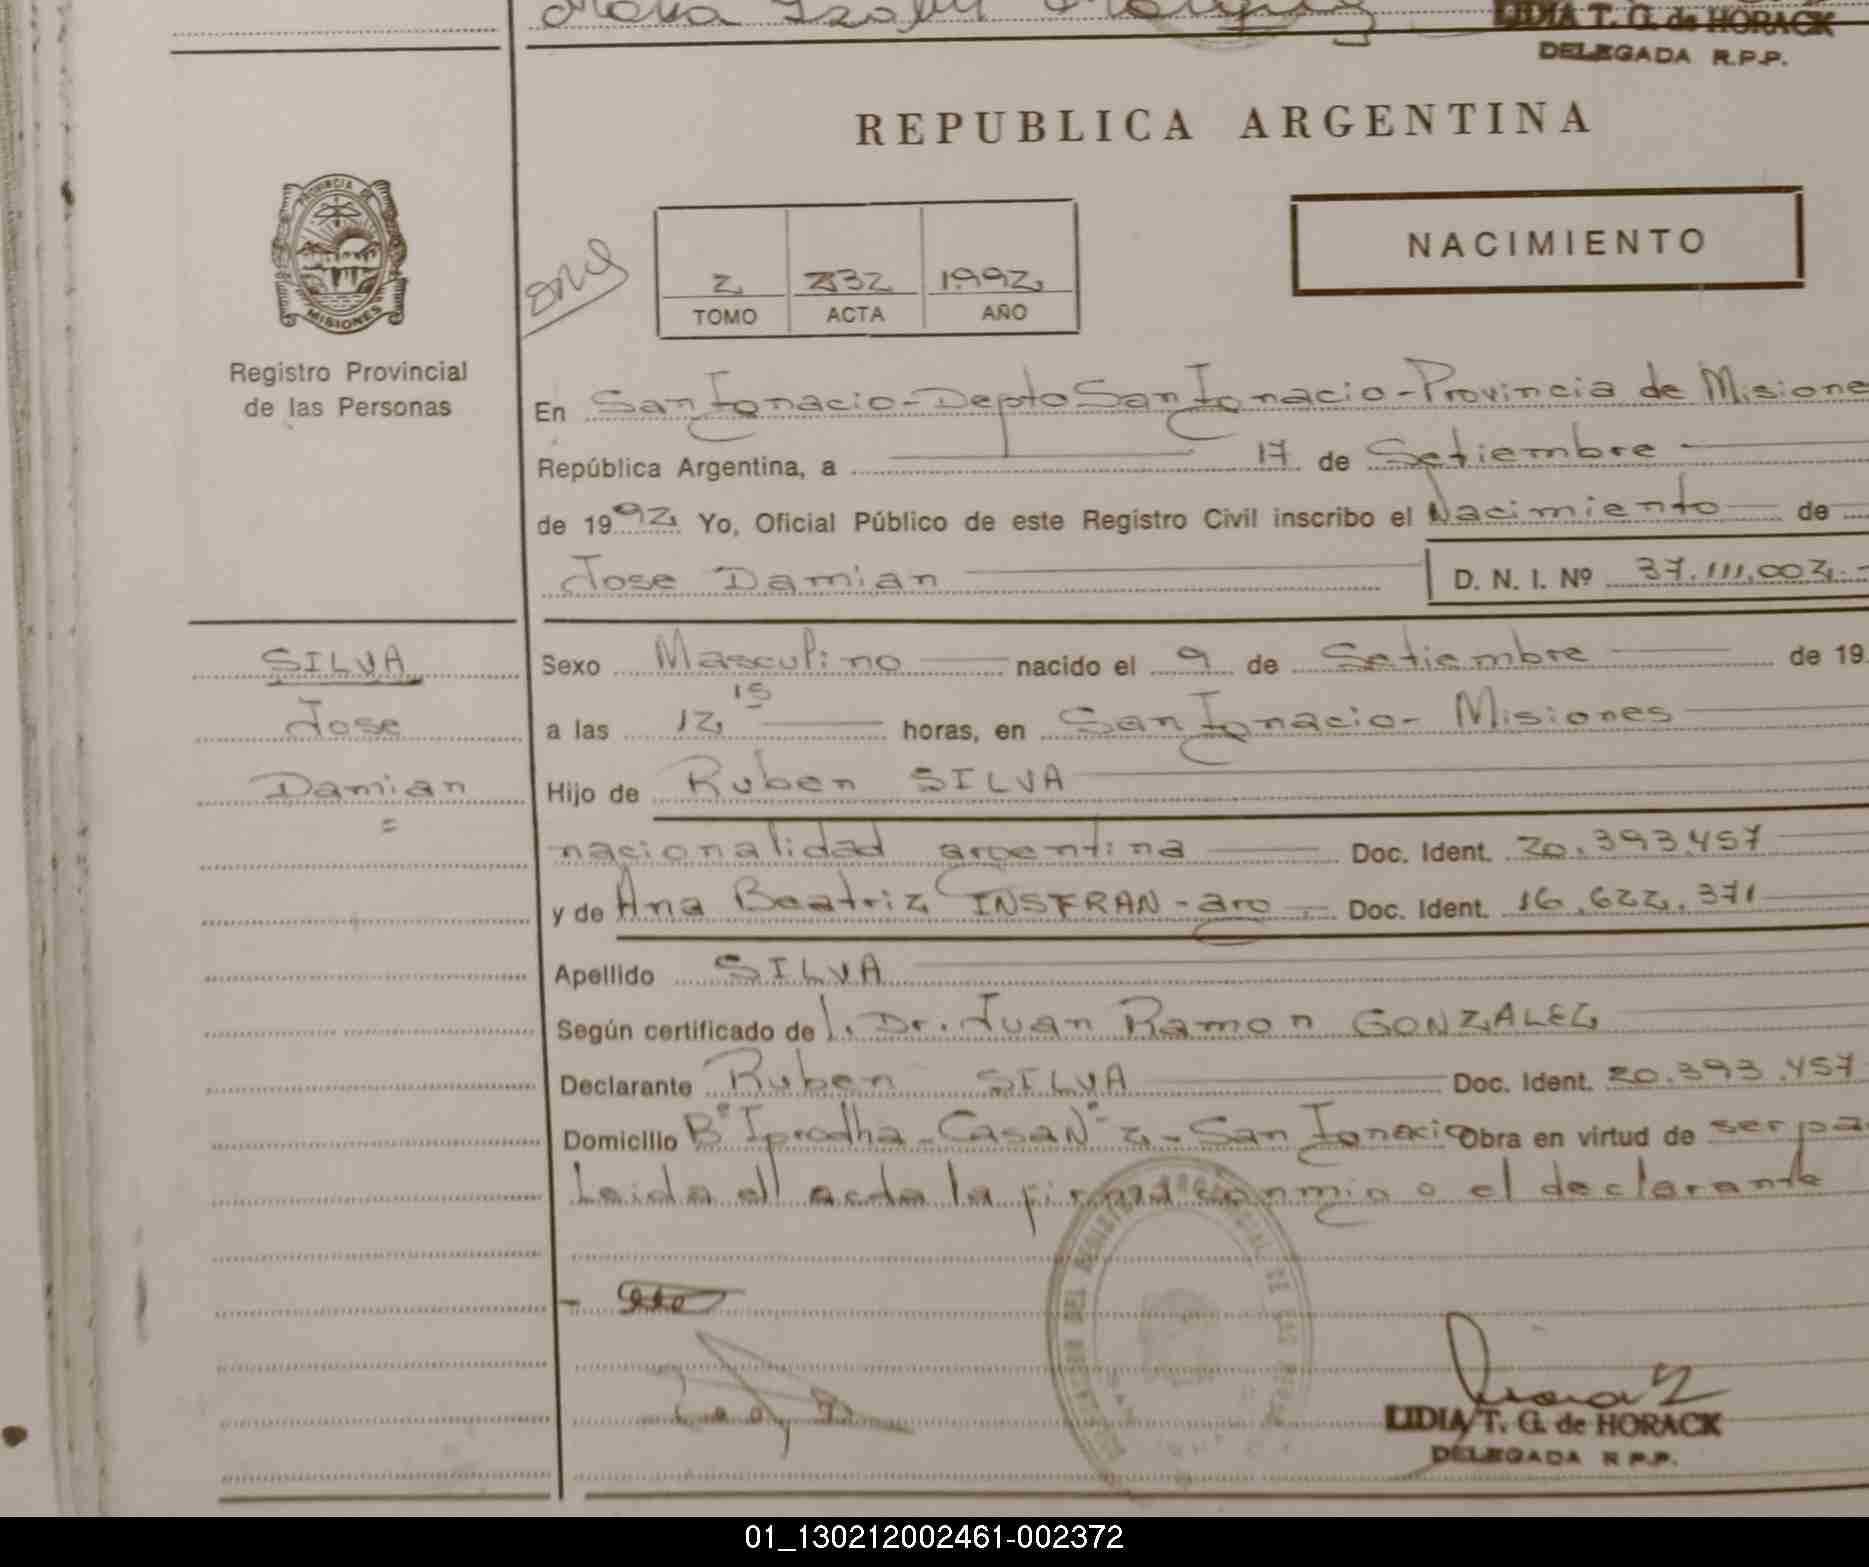 LIDIA T. G. de HORACK
DELEGADA R.P.P.
REPUBLICA ARGENTINA
PROVINCIA DE
MISIONES
Registro Provincial
de las Personas
2 232 1992
TOMO ACTA AÑO
NACIMIENTO
En San Ignacio - Depto San Ignacio - Provincia de Misione
República Argentina, a 17 de Setiembre
de 1992 Yo, Oficial Público de este Registro Civil inscribo el Nacimiento de
Jose Damian D. N. I. Nº 37.111.002.-
SILVA
Jose
Damian
Sexo Masculino nacido el 9 de Setiembre de 19
a las 12 15 horas, en San Ignacio - Misiones
Hijo de Ruben SILVA
nacionalidad argentina Doc. Ident. 20.393.457
y de Ana Beatriz INSFRAN - arg Doc. Ident. 16.622.371
Apellido SILVA
Según certificado de l. Dr. Juan Ramon GONZALEZ
Declarante Ruben SILVA Doc. Ident. 20.393.457
Domicilio Bº Iprodha - Casa Nº 2 - San Ignacio Obra en virtud de ser pa
Leida el acta la firma conmigo el declarante
LIDIA T. G. de HORACK
DELEGADA R.P.P.
01_130212002461-002372